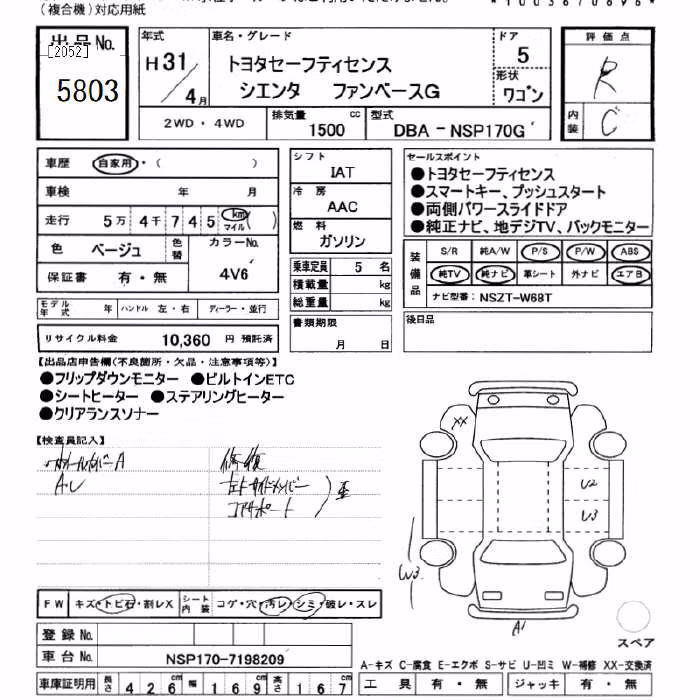 (複合機)対応用紙
出品No.
[2052]
5803
年式
H 31 / 4 月
車名・グレード
トヨタセーフティセンス
シエンタ ファンベースG
ドア
5
形状
ワゴン
評価点
R
内装
C
2WD・4WD
排気量
1500 cc
型式
DBA-NSP170G
車歴 自家用・( )
車検 年 月
走行 5万 4千 7 4 5 km マイル ( )
色 ベージュ 色替 カラーNo.
保証書 有・無 4V6
モデル年式 年 ハンドル 左・右 ディーラー・並行
リサイクル料金 10,360 円 預託済
シフト
IAT
冷房
AAC
燃料
ガソリン
乗車定員 5 名
積載量 kg
総重量 kg
書類期限
月 日
セールスポイント
●トヨタセーフティセンス
●スマートキー、プッシュスタート
●両側パワースライドドア
●純正ナビ、地デジTV、バックモニター
装備品
S/R 純A/W P/S P/W ABS
純TV 純ナビ 革シート 外ナビ エアB
ナビ型番: NSZT-W68T
後日品
【出品店申告欄(不良箇所・欠品・注意事項等)】
●フリップダウンモニター ●ビルトインETC
●シートヒーター ●ステアリングヒーター
●クリアランスソナー
【検査員記入】
A・U
修復
左F サイドメンバー
コアサポート
歪
XX
U2
U3
W3
A1
スペア
FW キズ・トビ石・割レX シート内装 コゲ・穴・汚レ・シミ・破レ・スレ
登録No.
車台No. NSP170-7198209
車庫証明用 長さ 426 cm 幅 169 cm 高さ 167 cm
A-キズ C-腐食 E-エクボ S-サビ U-凹ミ W-補修 XX-交換済
工具 有・無 ジャッキ 有・無